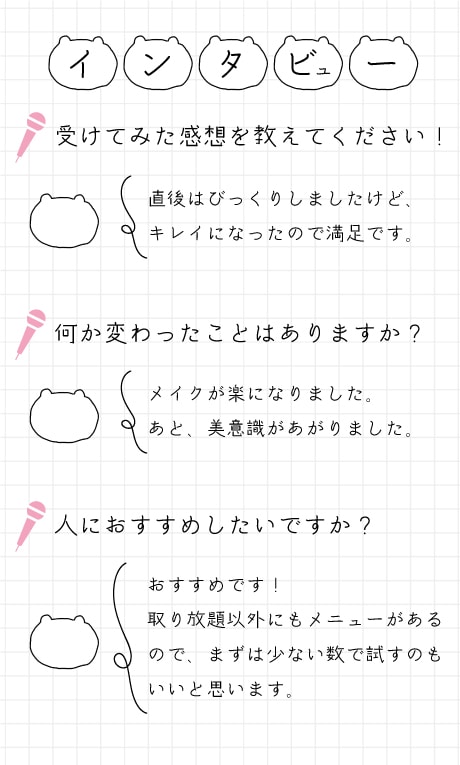 インタビュー
受けてみた感想を教えてください！
直後はびっくりしましたけど、
キレイになったので満足です。
何か変わったことはありますか？
メイクが楽になりました。
あと、美意識があがりました。
人におすすめしたいですか？
おすすめです！
取り放題以外にもメニューがある
ので、まずは少ない数で試すのも
いいと思います。